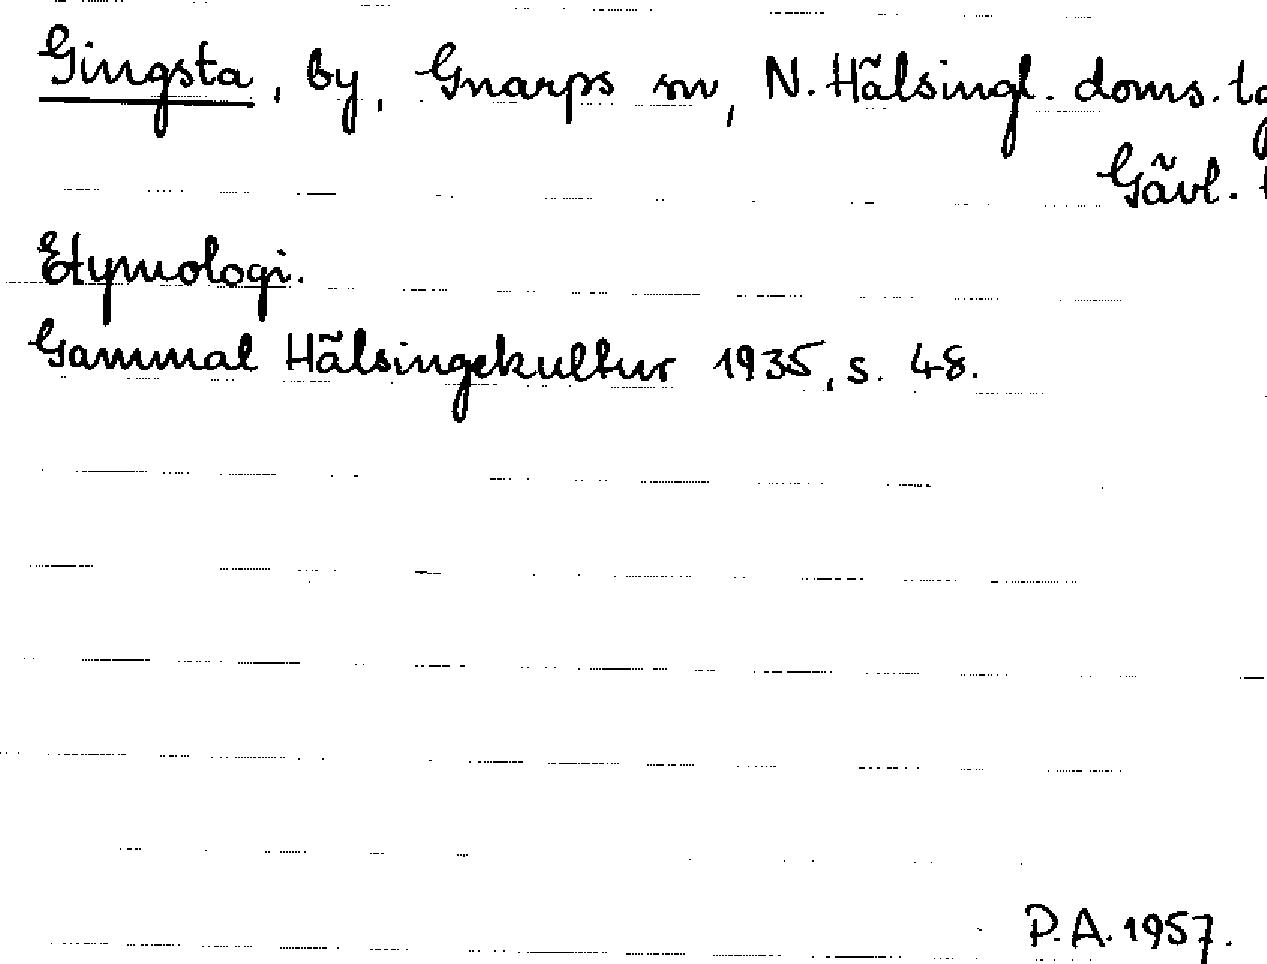 Gingsta, by, Gnarps sn, N. Hälsingl. doms. tg
Gävl.
Etymologi.
Gammal Hälsingekultur 1935, s. 48.
P.A. 1957.